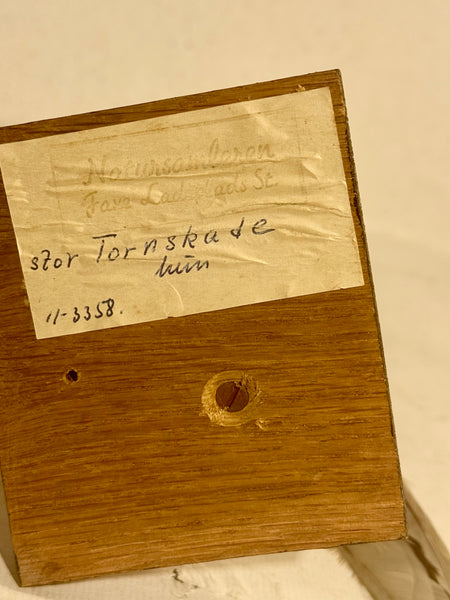 Natursamleren
Favr Ladeplads St.
stor Tornskade
hun
11-3358.